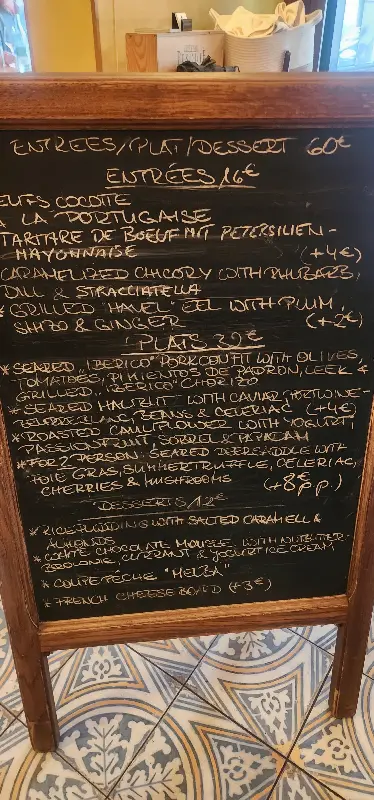 ENTREES/PLAT/DESSERT 60€
ENTRÉES 16€
ŒUFS COCOTTE
A LA PORTUGAISE
TARTARE DE BOEUF MIT PETERSILIEN-
MAYONNAISE (+4€)
CARAMELIZED CHICORY WITH RHUBARB,
DILL & STRACCIATELLA
* GRILLED "HAVEL" EEL WITH PLUM,
SHISO & GINGER (+2€)
PLATS 32€
* SEARED "IBERICO" PORK CONFIT WITH OLIVES,
TOMATOES, PIMIENTOS DE PADRON, LEEK &
GRILLED "IBERICO" CHORIZO
* SEARED HALIBUT WITH CAVIAR, PORTWINE-
BEURRE BLANC, BEANS & CELERIAC (+4€)
* ROASTED CAULIFLOWER WITH YOGURT,
PASSIONFRUIT, SORREL & PAPADAM
* FOR 2 PERSON: SEARED DEER SADDLE WITH
FOIE GRAS, SUMMERTRUFFLE, CELERIAC,
CHERRIES & MUSHROOMS (+8€ p.p.)
DESSERTS 12€
* RICE PUDDING WITH SALTED CARAMELL &
ALMONDS
* COMTÉ CHOCOLATE MOUSSE WITH NUTBUTTER-
BROWNIE, CURRANT & YOGURT ICE CREAM
* COUPE PECHE "MELBA"
* FRENCH CHEESE BOARD (+3€)